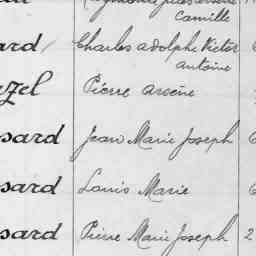 Camille
ard Charles Adolphe Victor
Antoine
zel Pierre Arsène
sard Jean Marie Joseph
sard Louis Marie
sard Pierre Marie Joseph 2